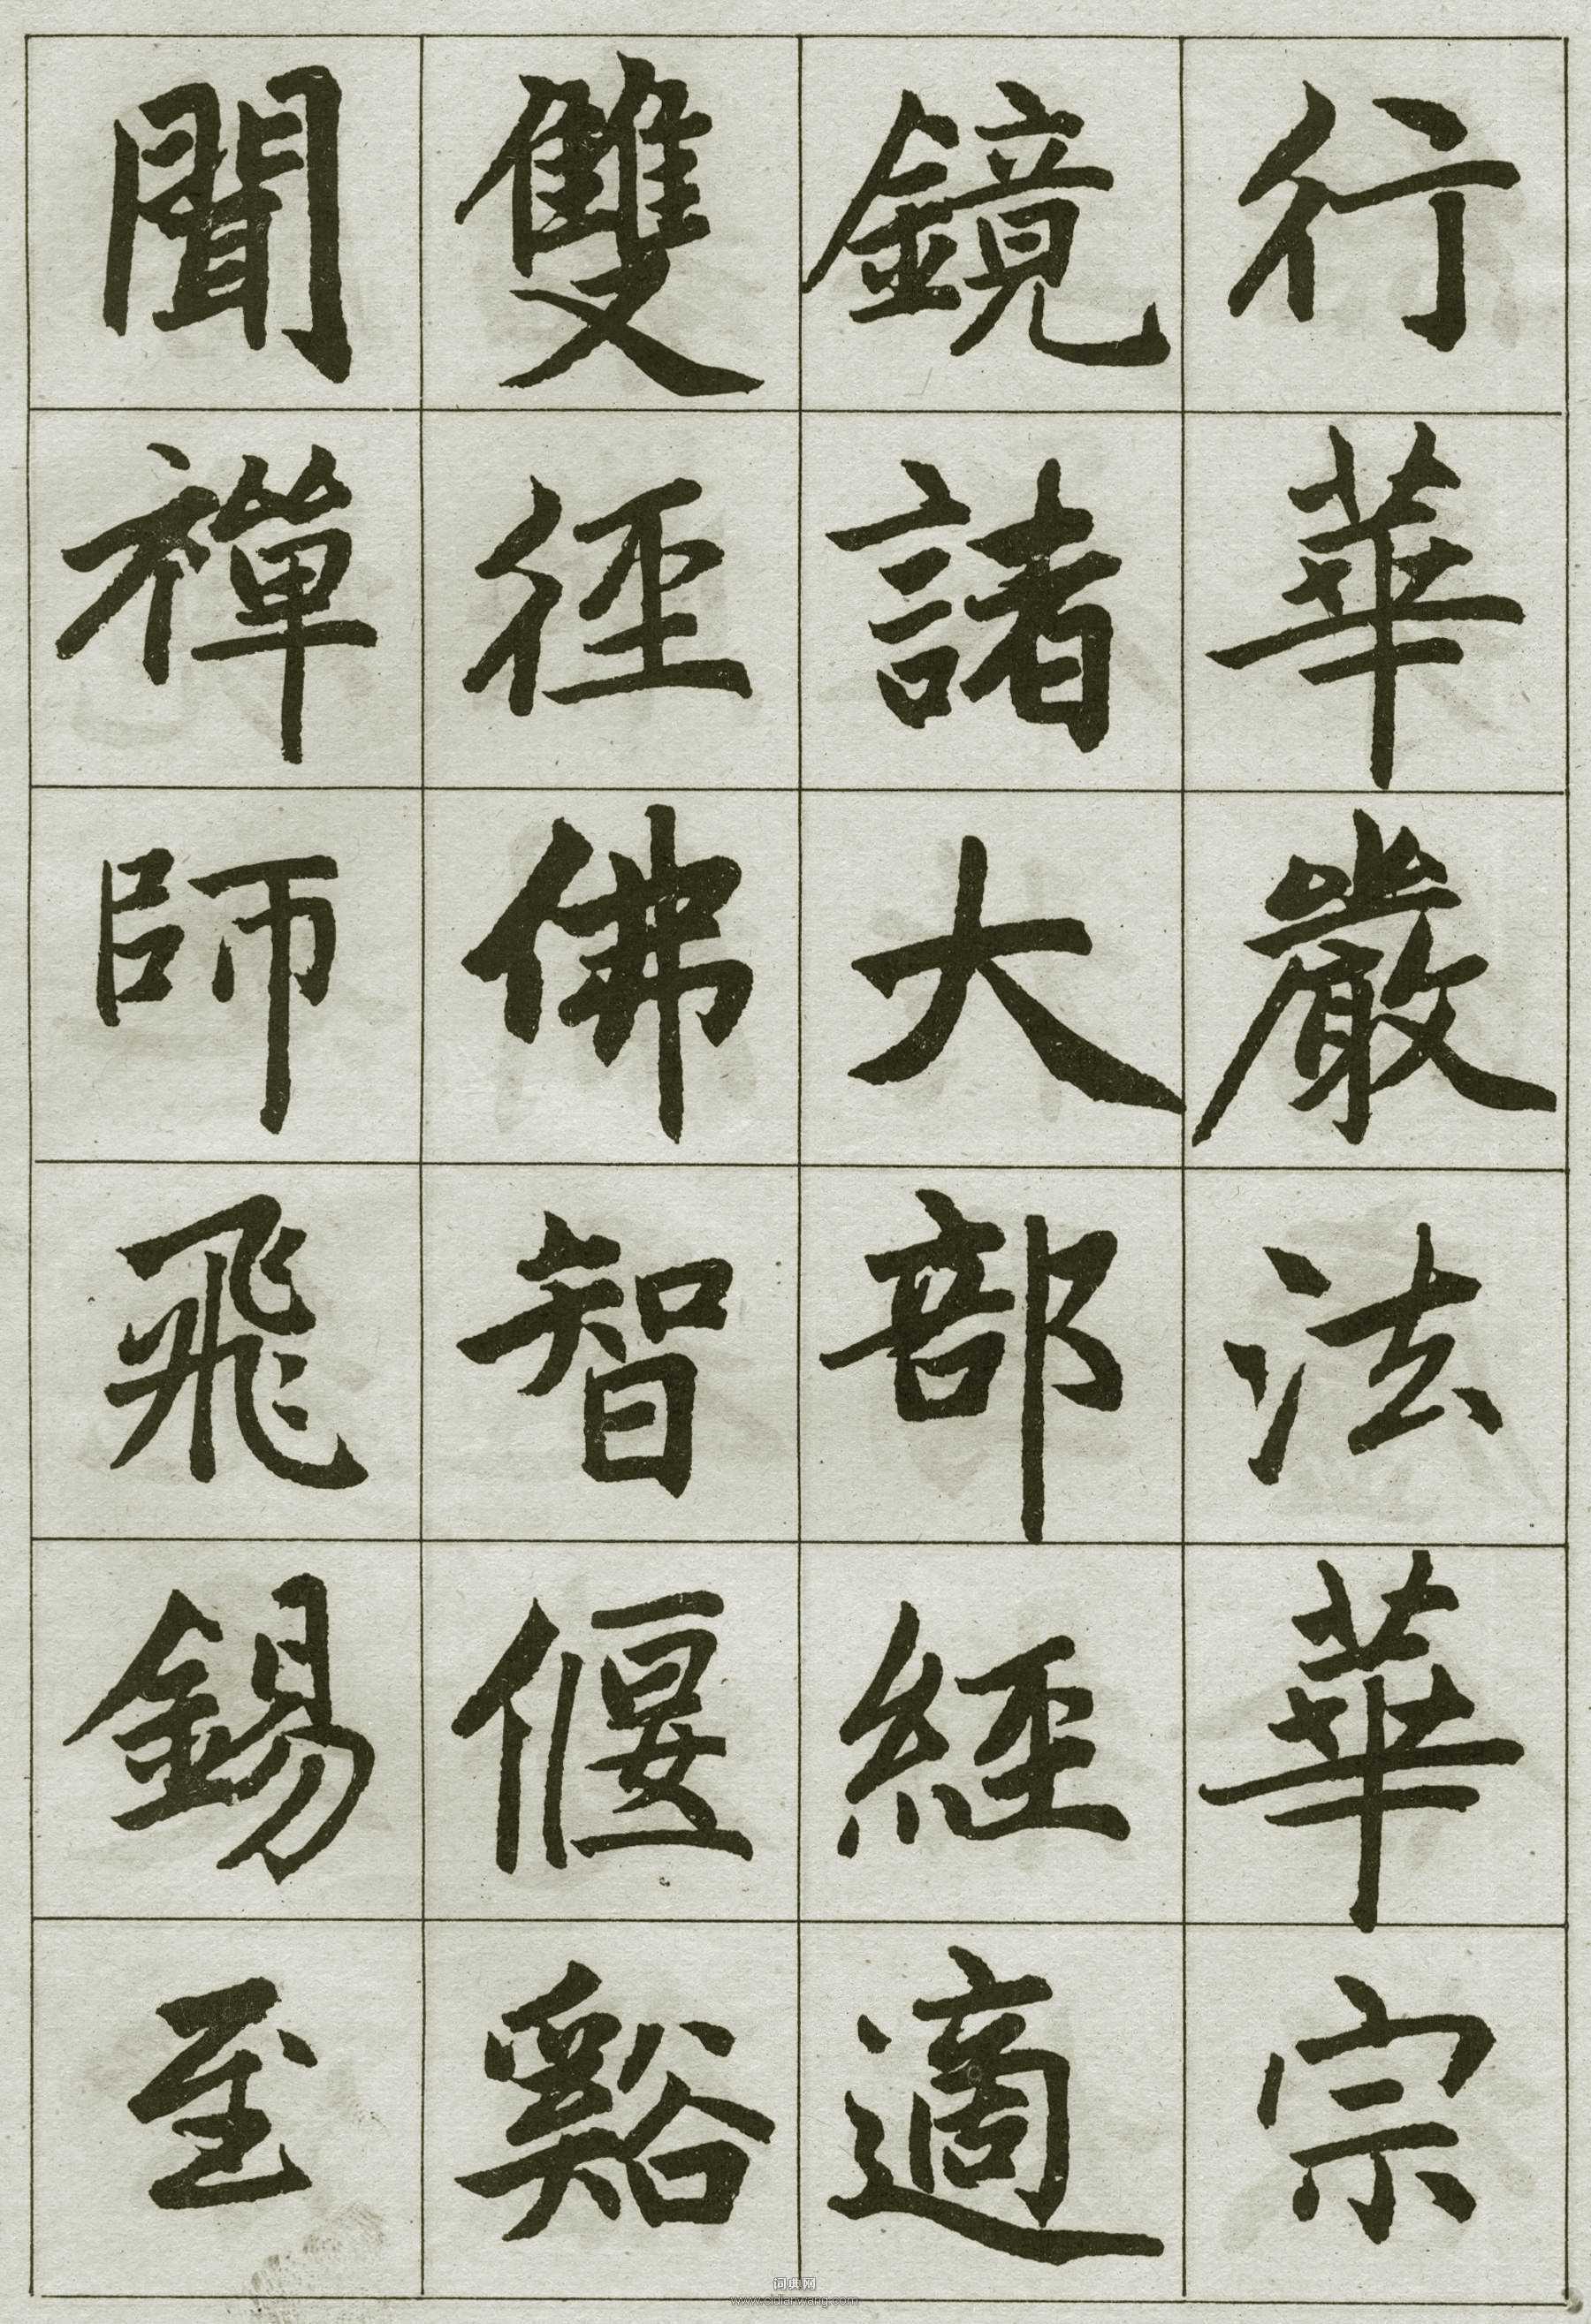 行華嚴法華宗
鏡諸大部經適
雙徑佛智偃谿
聞禪師飛錫至
词典网
www.cidianwang.com